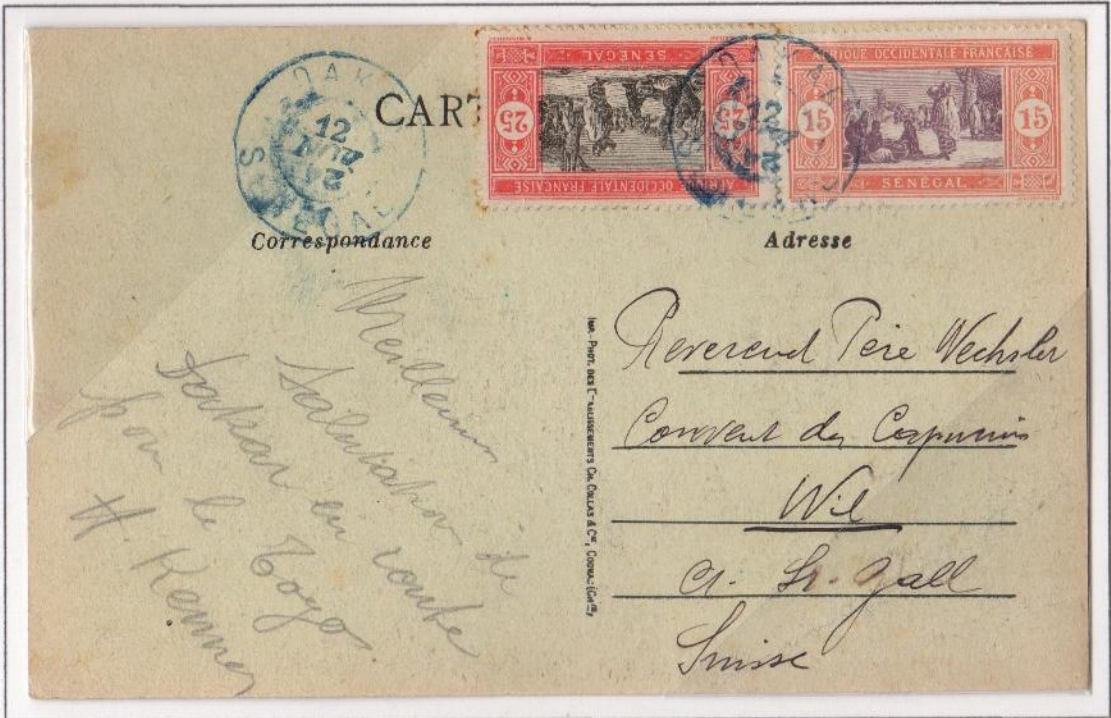 DAK
12
SENEGAL
CART
SENEGAL
25
25
AFRIQUE OCCIDENTALE FRANÇAISE
DAKAR
12
QUE OCCIDENTALE FRANÇAISE
15
15
SENEGAL
Correspondance
Adresse
Meilleures
Salutations de
Dakar en route
pour le Togo.
H. Kenner
IMP.-PHOT. DES ETABLISSEMENTS CH. COLLAS & Cie, COGNAC
Reverend Père Wechsler
Couvent des Capucins
Wil
Ct. St. Gall
Suisse